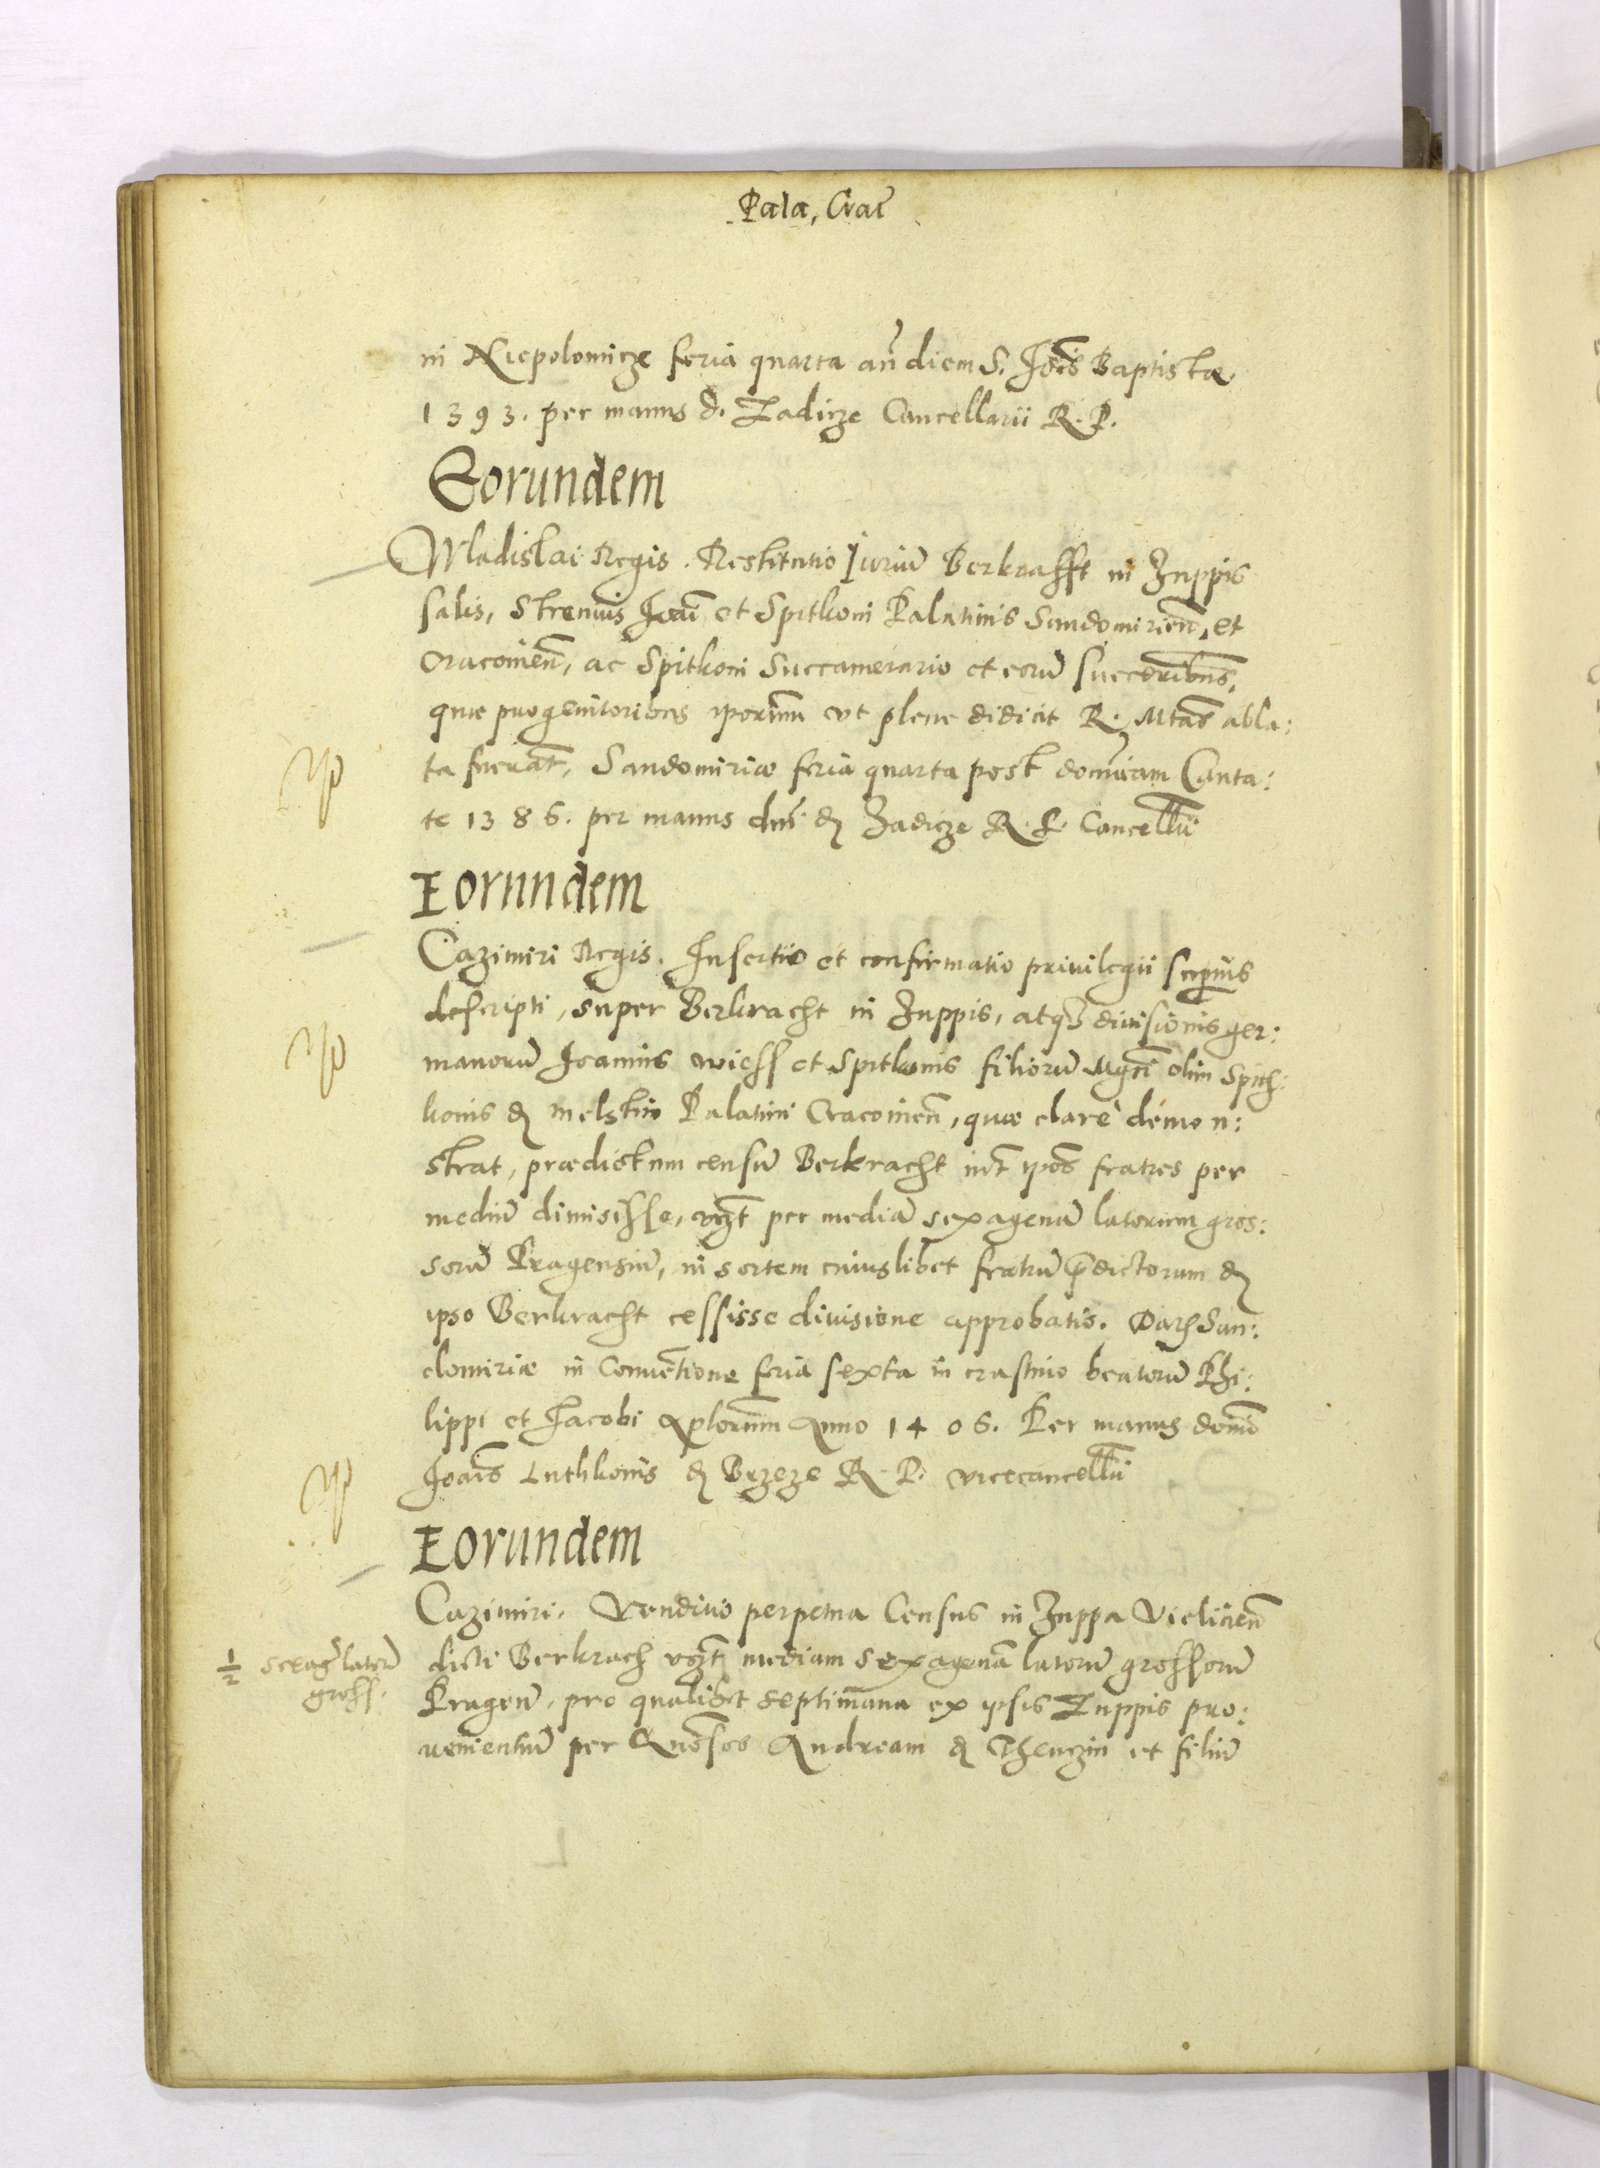 Pala, Crac̃
in Niepolomicze feria quarta añ diem S. Joïs Baptistæ
1393. per manus d. Zadicze Cancellarii R. P.
Eorundem
Wladislai Regis. Restitutio Iuriũ Berkrafft in Zuppis
salis, Strenuis Joãi et Spitkoni Palatinis Sandomirieñ, et
Cracovieñ, ac Spitkoni Succamerario et eorũ succeribus,
quæ progenitoribus ipsorum ut plene didicit R. Mtas abla:
ta fuerãt, Sandomiriæ feria quarta post domĩcam Canta:
te 1386. per manus dñi d. Zadicze R. P. Cancellrii
Eorundem
Cazimiri Regis. Insertio et confirmatio privilegii superius
descripti, super Berkracht in Zuppis, atq3 divisionis ger:
manorũ Joannis wiess et Spitkonis filiorũ Mgci olim Spith:
konis d. Melstin Palatini Cracovieñ, quæ clarè demon:
strat, prædictum censũ Berkracht int̃ ipos fratres per
mediũ dimisisse, vizt per mediã sexagenã latorum gros:
sorũ Pragensiũ, in sortem cuiuslibet fratrũ p̃dictorum d.
ipso Berkracht cessisse divisione approbatis. Dat San:
domiriæ in Convẽtione feria sexta in crastino beatorũ Phi:
lippi et Jacobi Aplorum Anno 1406. Per manus domĩ
Joãis Luthkonis d. Brzeze R. P. vicecancellrii
Eorundem
Cazimiri. Venditio perpetua Census in Zuppa Vieliciẽn
dicti Berkrach vizt mediam sexagenã latorũ grossorũ
Prageñ, pro qualibet septimana ex ipsis Zuppis pro:
venientiũ per Gnẽsos Andream d. Thenczin et filiũ
½ sexag̃ latorũ
gross.